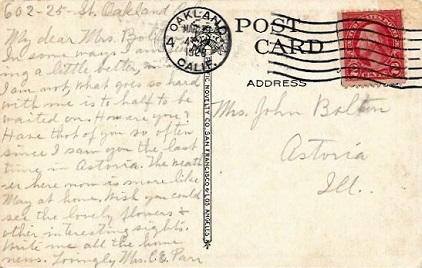 602-25-St. Oakland
My dear Mrs. Bolton
In some ways I am
ing a little better, in
I am not, what goes so hard
with me is to half to be
waited on. How are you?
Have thot of you so often
since I saw you the last
time in Astoria. The weath
er here now is more like
May at home. Wish you could
see the lovely flowers &
other interesting sights.
Write me all the home
news. Lovingly Mrs. C. E. Parr
OAKLAND
4
CALIF.
POST
CARD
ADDRESS
Mrs. John Bolton
Astoria
Ill.
NOVELTY CO. SAN FRANCISCO & LOS ANGELES